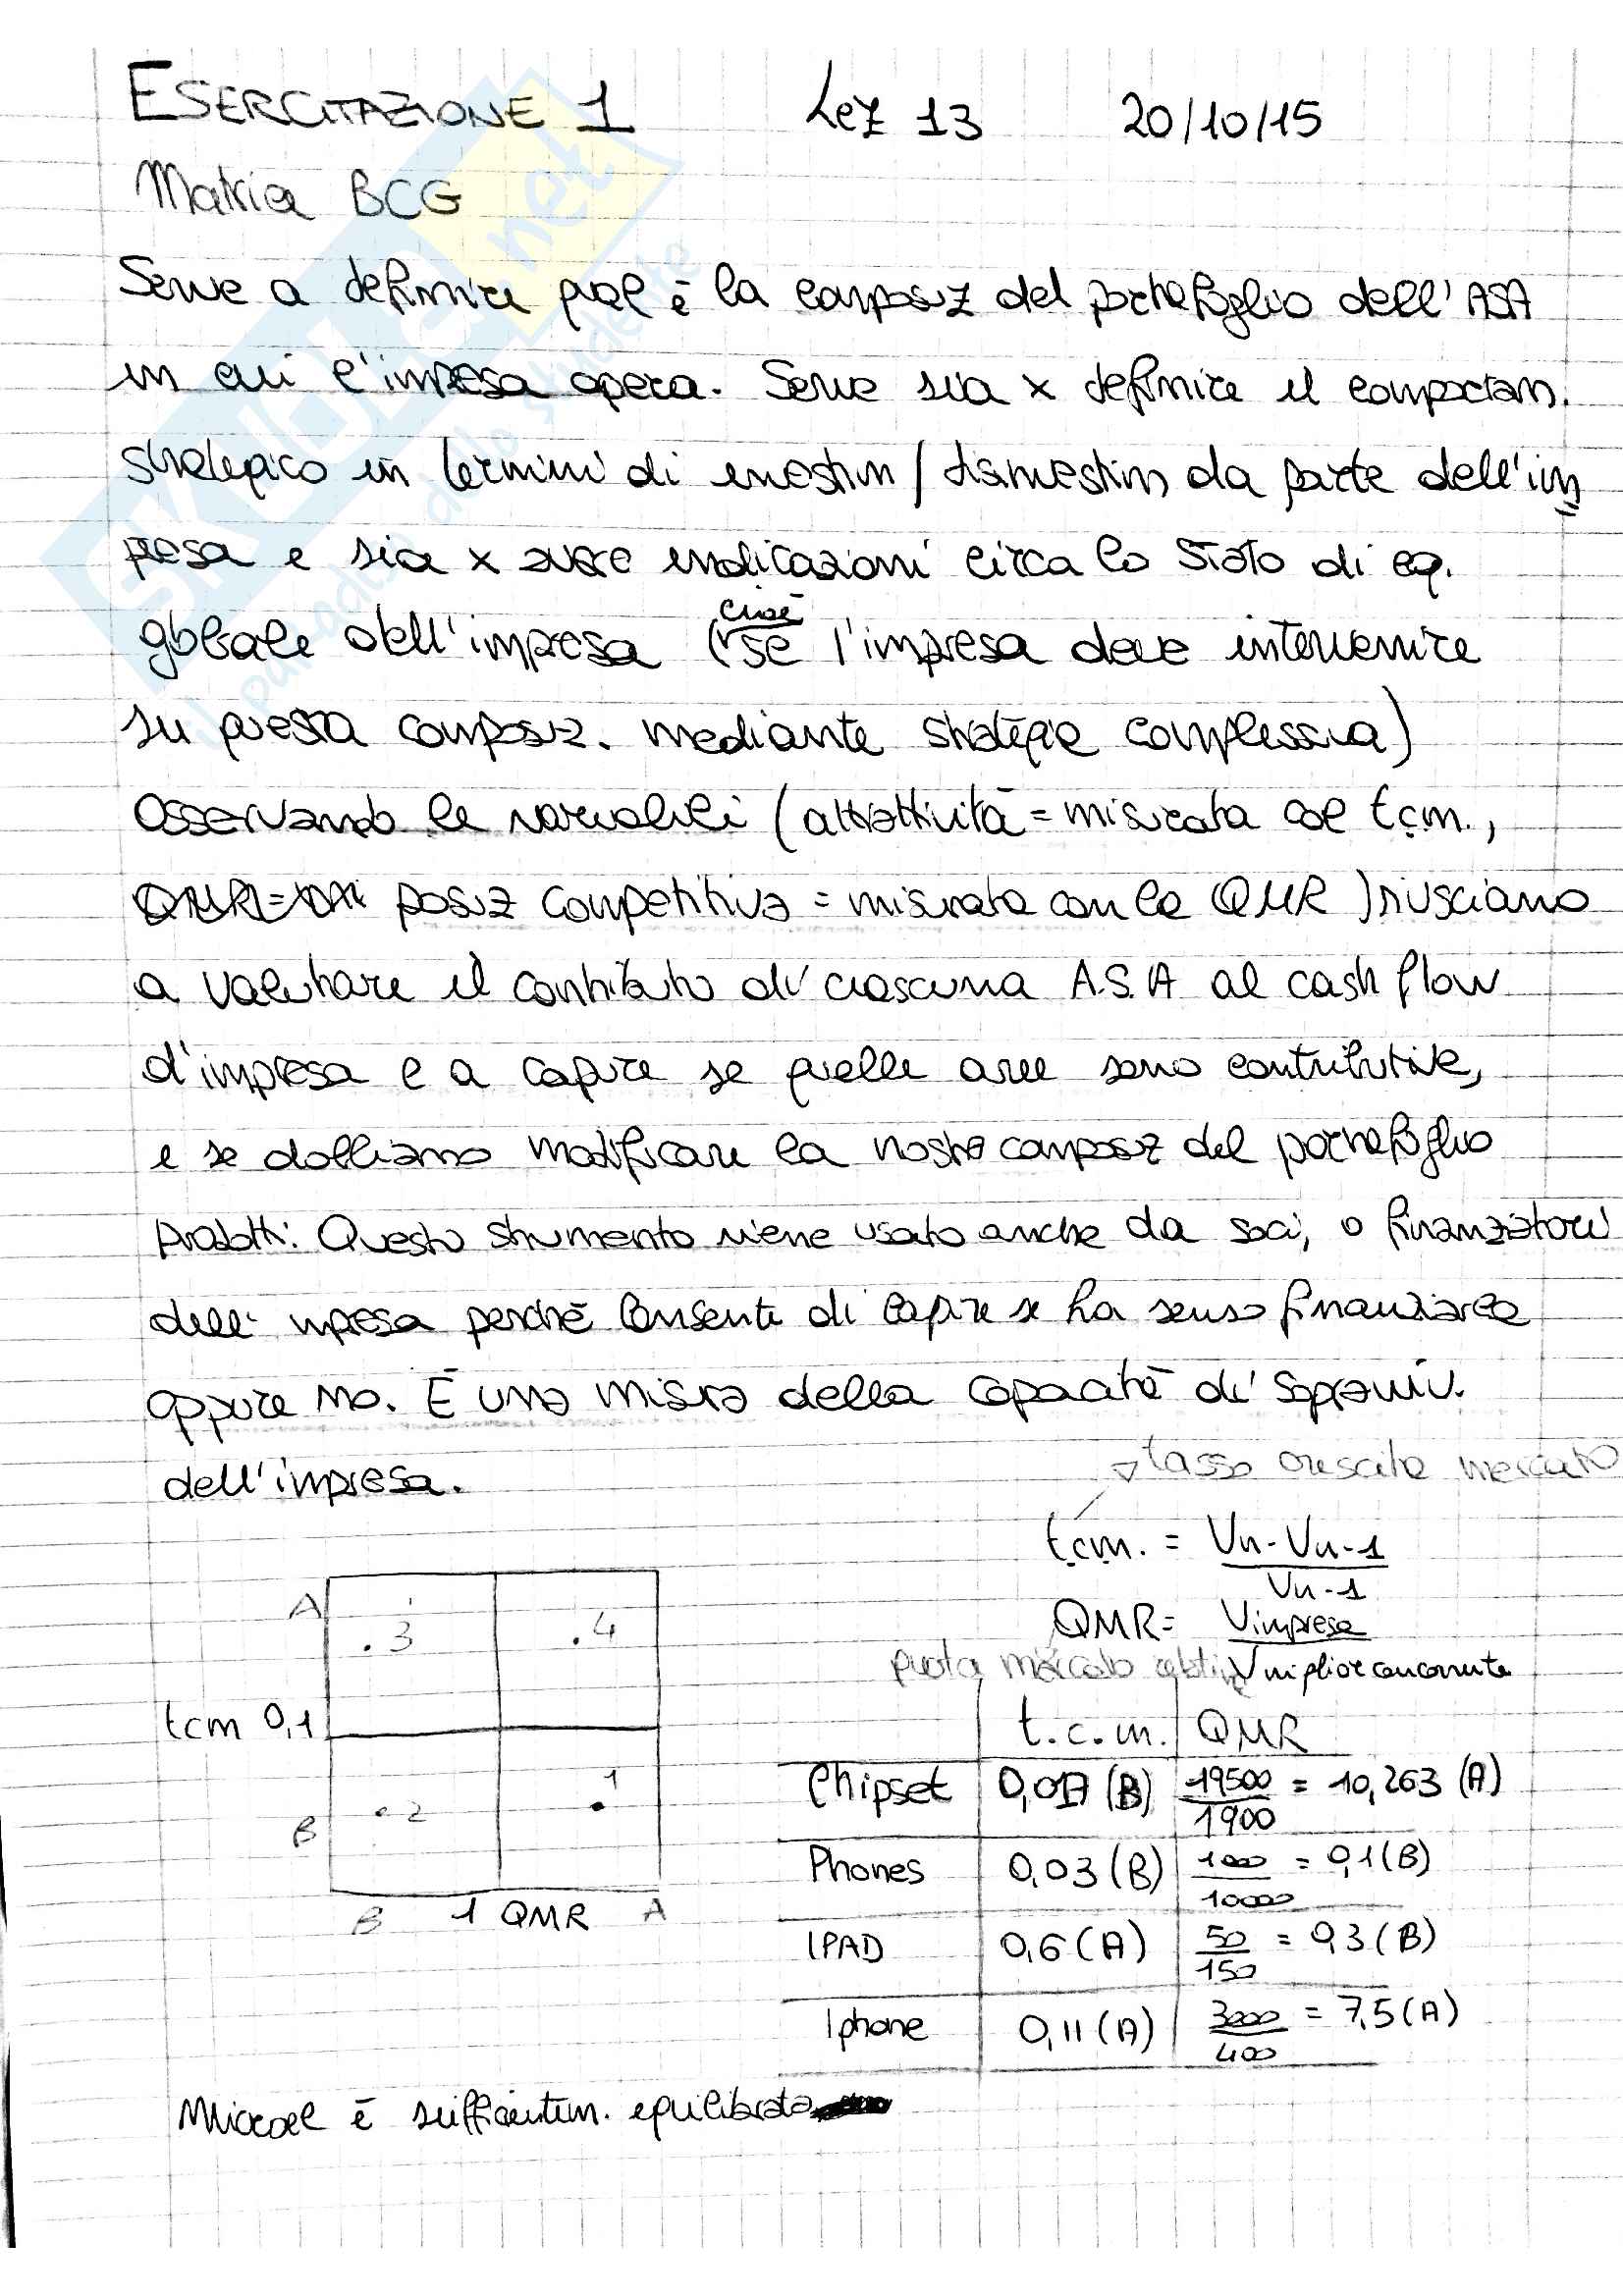 ESERCITAZIONE 1 Lez 13 20/10/15
Matrice BCG
Serve a definire qual è la composiz del portafoglio dell'ASA
in cui l'impresa opera. Serve sia x definire il comportam.
strategico in termini di investim / disinvestim da parte dell'im
presa e sia x avere indicazioni circa lo stato di eq.
globale dell'impresa (cioè se l'impresa deve intervenire
su questa composiz. mediante strategie complessiva)
Osservando le variabili (attrattività = misurata col t.c.m.,
posiz competitiva = misurata con la QMR) riusciamo
a valutare il contributo di ciascuna A.S.A al cash flow
d'impresa e a capire se quelle aree sono contributive,
e se dobbiamo modificare la nostra composiz del portafoglio
prodotti. Questo strumento viene usato anche da soci, o finanziatori
dell' impresa perchè consente di capire se ha senso finanziarla
oppure no. È una misura della capacità di sopravviv.
dell'impresa.
tasso crescita mercato
t.c.m. = Vn - Vn-1
Vn-1
QMR = Vimpresa
quota mercato relativa Vmiglior concorrente
A .3 .4
tcm 0,1
B .2 1
B 1 QMR A
t.c.m. QMR
Chipset 0,017 (B) 19500 = 10,263 (A)
1900
Phones 0,03 (B) 1000 = 0,1 (B)
10000
IPAD 0,6 (A) 50 = 0,3 (B)
150
Iphone 0,11 (A) 3000 = 7,5 (A)
400
è sufficientem. equilibrata
SKUOLA.net
paradiso dello studente